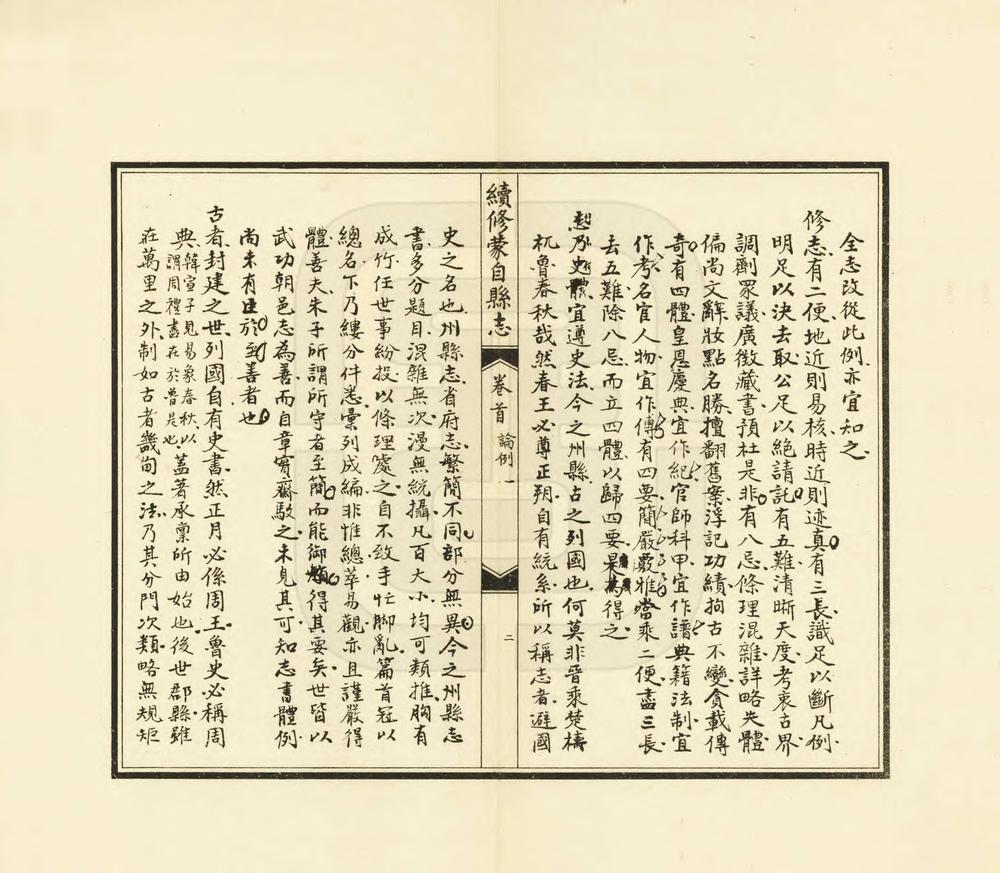 全志改從此例亦宜知之
修志有二便地近則易核時近則迹真有三長識足以斷凡例
明足以決去取公足以絕請託有五難清晰天度考衷古界
調劑眾議廣徵藏書預杜是非有八忌條理混雜詳略失體
偏尚文辭妝點名勝擅翻舊案浮記功績拘古不變貪載傳
奇有四體皇恩慶典宜作紀官師科甲宜作譜典籍法制宜
作考名宦人物宜作傳有四要簡嚴覈雅當乘二便盡三長
去五難除八忌而立四體以歸四要為得之
乃史體宜遵史法今之州縣古之列國也何莫非晉乘楚檮
杌魯春秋哉然春王必尊正朔自有統系所以稱志者避國
續修蒙自縣志
卷首
論例一
二
史之名也州縣志省府志繁簡不同部分無異今之州縣志
書多分題目混雜無次漫無統攝凡百大小均可類推胸有
成竹任世事紛投以條理處之自不致手忙腳亂篇首冠以
總名下乃縷分件悉彙列成編非惟總萃易觀亦且謹嚴得
體善夫朱子所謂所守者至簡而能御煩得其要矣世皆以
武功朝邑志為善而自章實齋駁之未見其可知志書體例
尚未有臣於至善者也
古者封建之世列國自有史書然正月必係周王魯史必稱周
典韓宣子見易象春秋以謂周禮盡在於魯是也蓋著承稟所由始也後世郡縣雖
在萬里之外制如古者畿甸之法乃其分門次類略無規矩